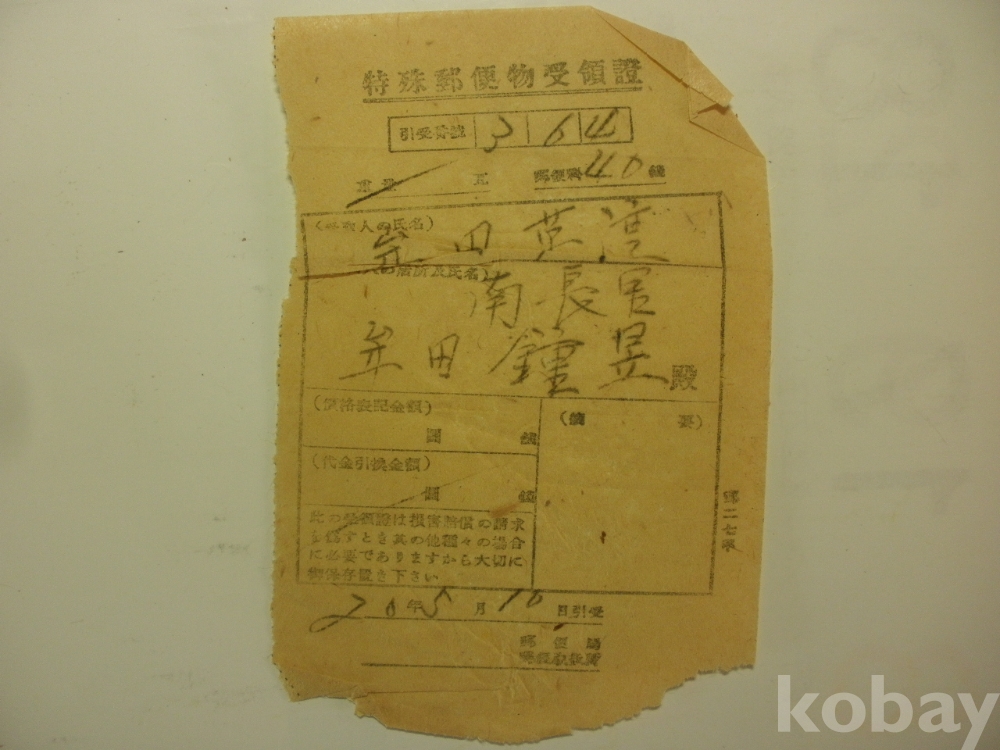 特殊郵便物受領證
引受番號 3 6 4
重量 瓦 郵便料 40 錢
(受取人の氏名)
牟田英淳
住所及氏名)
南長官
牟田鍾昱 殿
(價格表記金額)
圓 錢
(摘 要)
(代金引換金額)
圓 錢
此の受領證は損害賠償の請求
を爲すとき其の他種々の場合
に必要でありますから大切に
御保存置き下さい
郵二七號
20年5月10日引受
郵便局
郵便取扱所
kobay